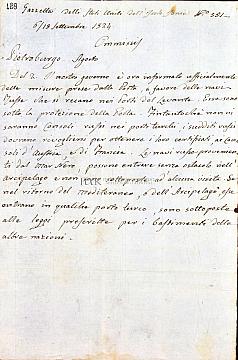 189
Gazzetta delli Stati Uniti dell' Isole Ionie No 351.
6/18 Settembre 1824
Pietroburgo Agosto
Del 2. Il nostro governo è ora informato officialmente
delle misure prese dalla Porta, a favore delle navi
Russe che si recano nei Porti del Levante. Esse sono
sotto la protezione della Porta. Fintantochè non vi
saranno Consoli russi nei porti turchi, i sudditi russi
dovranno rivolgersi per ottenere i loro certificati ai Con-
soli d'Austria, e di Francia. Le navi russe provenien-
ti dal Mar Nero, possono entrare senza ostacolo nell'
Arcipelago e non sottoposte ad alcuna visita. Se
nel ritorno del Mediterraneo, o dell'Arcipelago esse
entrano in qualche porto turco, sono sottoposte
alle leggi prescritte per i bastimenti delle
altre nazioni.